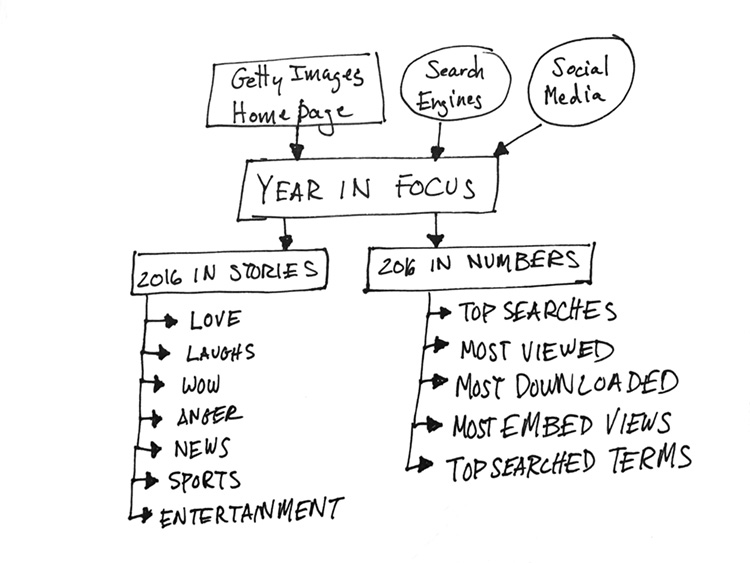 Getty Images
Home page
Search
Engines
Social
Media
YEAR IN FOCUS
2016 IN STORIES
2016 IN NUMBERS
LOVE
LAUGHS
WOW
ANGER
NEWS
SPORTS
ENTERTAINMENT
TOP SEARCHES
MOST VIEWED
MOST DOWNLOADED
MOST EMBED VIEWS
TOP SEARCHED TERMS